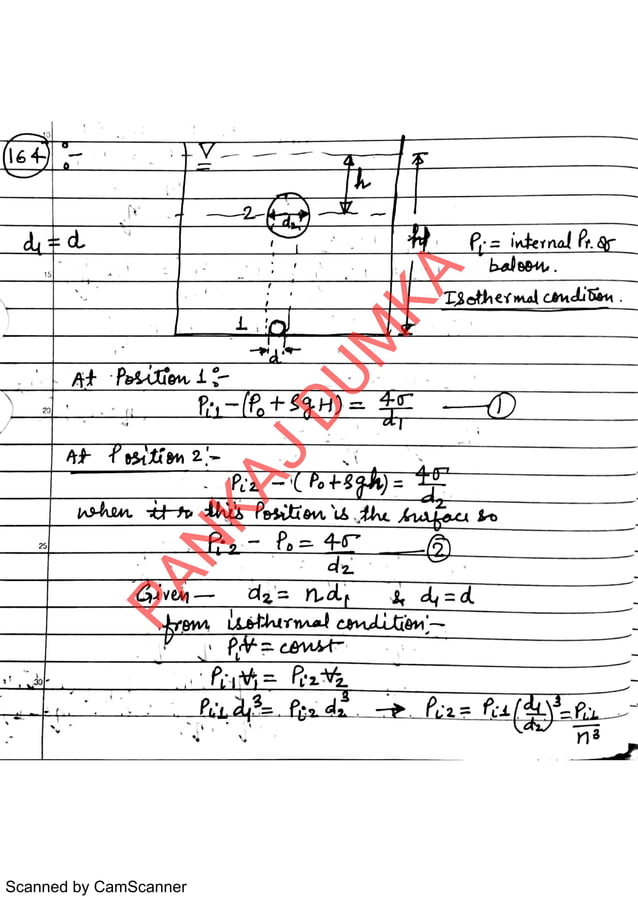 164 :-
h
2
d₂
d₁ = d
H
Pi = internal Pr. of
baloon.
Isothermal condition.
1
d
At Position 1 :-
Pi1 - (P₀ + ρgH) = 4σ/d₁ —— ①
At Position 2 :-
Pi2 - (P₀ + ρgh) = 4σ/d₂
when this Position is the surface so
Pi2 - P₀ = 4σ/d₂ —— ②
Given - d₂ = nd₁ & d₁ = d
from isothermal condition :-
PiV = const
Pi1 V₁ = Pi2 V₂
Pi1 d₁³ = Pi2 d₂³ → Pi2 = Pi1 (d₁/d₂)³ = Pi1/n³
PANKAJ DUMKA
10
15
20
25
30
Scanned by CamScanner